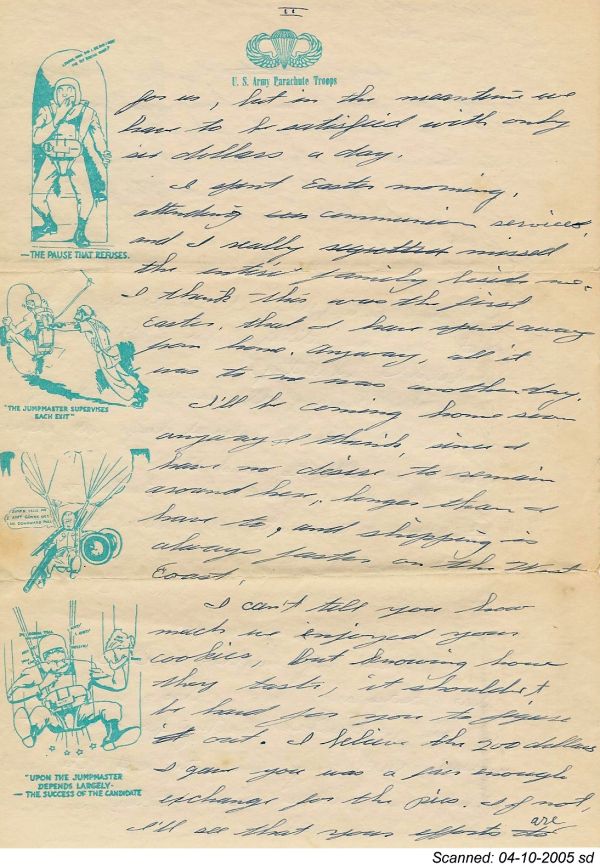 II
U. S. Army Parachute Troops
for us, but in the meantime we
have to be satisfied with only
six dollars a day.
I spent Easter morning,
attending was communion services,
and I really regretted missed
the entire family beside me.
I think this was the first
Easter, that I have spent away
from home. Anyway, all it
was to me was another day.
I'll be coming home soon
anyway I think, since I
have no desire to remain
around here, longer than I
have to, and shipping is
always faster on the West
Coast.
I can't tell you how
much we enjoyed your
cookies, but knowing how
they taste, it shouldn't
be hard for you to figure
it out. I believe the 200 dollars
I gave you was a fair enough
exchange for the pies. If not,
I'll see that your efforts to are
—THE PAUSE THAT REFUSES.
"THE JUMPMASTER SUPERVISES
EACH EXIT"
"UPON THE JUMPMASTER
DEPENDS LARGELY-
— THE SUCCESS OF THE CANDIDATE
Scanned: 04-10-2005 sd